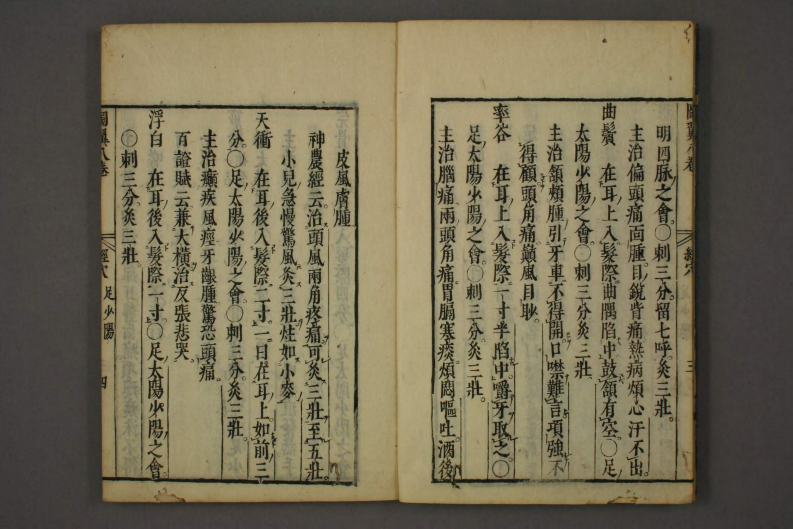 明四脉之會○刺三分留七呼灸三壯
主治偏頭痛面腫目銳眥痛熱病煩心汗不出
曲鬢　在耳上入髮際曲隅陷中鼓頷有空○足
太陽少陽之會○刺三分灸三壯
主治頷頰腫引牙車不得開口噤難言項強不
得顧頭角痛巔風目眇
率谷　在耳上入髮際一寸半陷中嚼牙取之○
足太陽少陽之會○刺三分灸三壯
主治腦痛兩頭角痛胃膈寒痰煩悶嘔吐酒後
皮風膚腫
神農經云治頭風兩角疼痛可灸三壯至五壯
小兒急慢驚風灸三壯炷如小麥
天衝　在耳後入髮際二寸一曰在耳上如前三
分○足太陽少陽之會○刺三分灸三壯
主治癲疾風痙牙齦腫驚恐頭痛
百證賦云兼大橫治反張悲哭
浮白　在耳後入髮際一寸○足太陽少陽之會
○刺三分灸三壯
圖翼八卷
經穴
足少陽
四